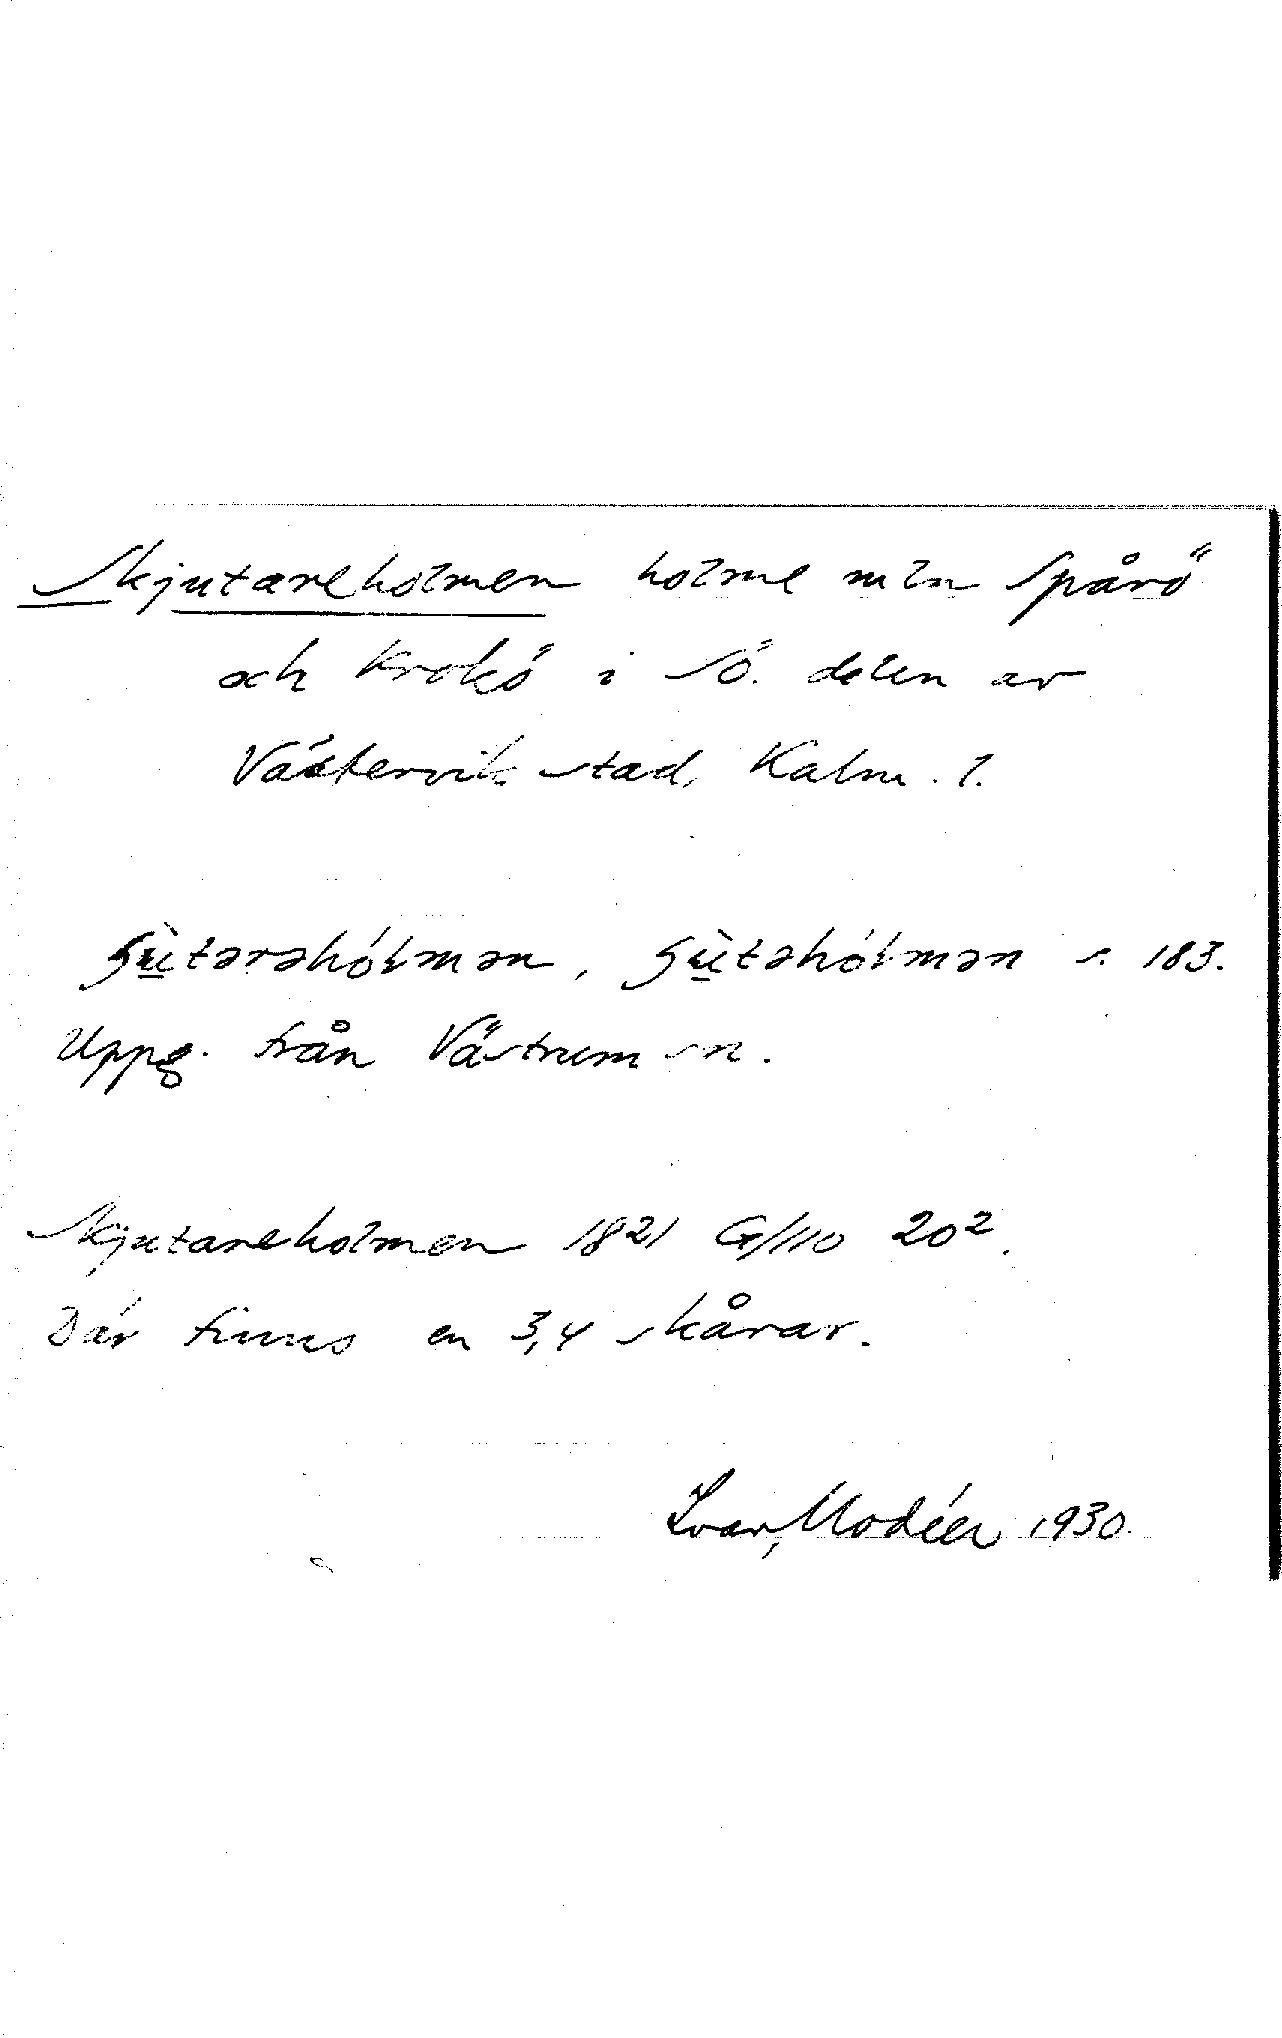 Skjutareholmen holme mln Spårö
och Krokö i sö. delen av
Västervik stad, Kalm. l.
ʃù̲tərəhólmən, ʃù̲təhólmən s. 183.
Uppg. från Västrum sn.
Skjutareholmen 1821 G/110 20²
Där finns en 3,4 skårar.
Ivar Modéer 1930